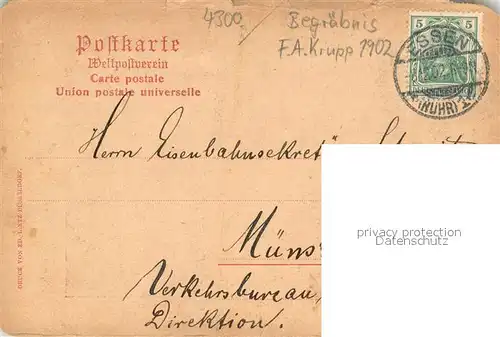 4300
Begräbnis
F.A. Krupp 1902
Postkarte
Weltpostverein
Carte postale
Union postale universelle
5 5
ESSEN
(RUHR)
Herrn Eisenbahnsekret
privacy protection
Datenschutz
Müns
Verkehrsbureau,
Direktion.
DRUCK VON ED. DÜSSELDORF.